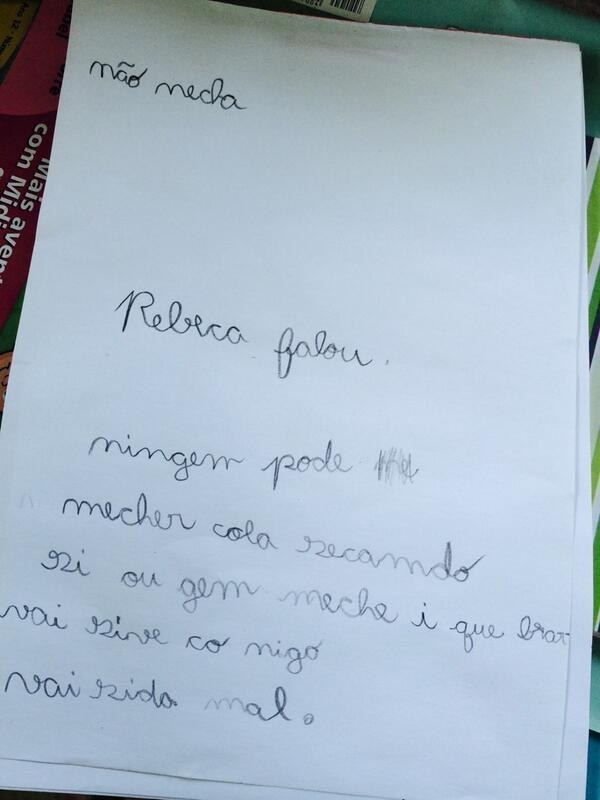 não mecha
Rebeca falou.
ningem pode
mecher cola secamdo
si ou gem meche i que brar
vai sive co migo
vai sida mal.
Mais aven
com Midi
Ano 12 - Núm